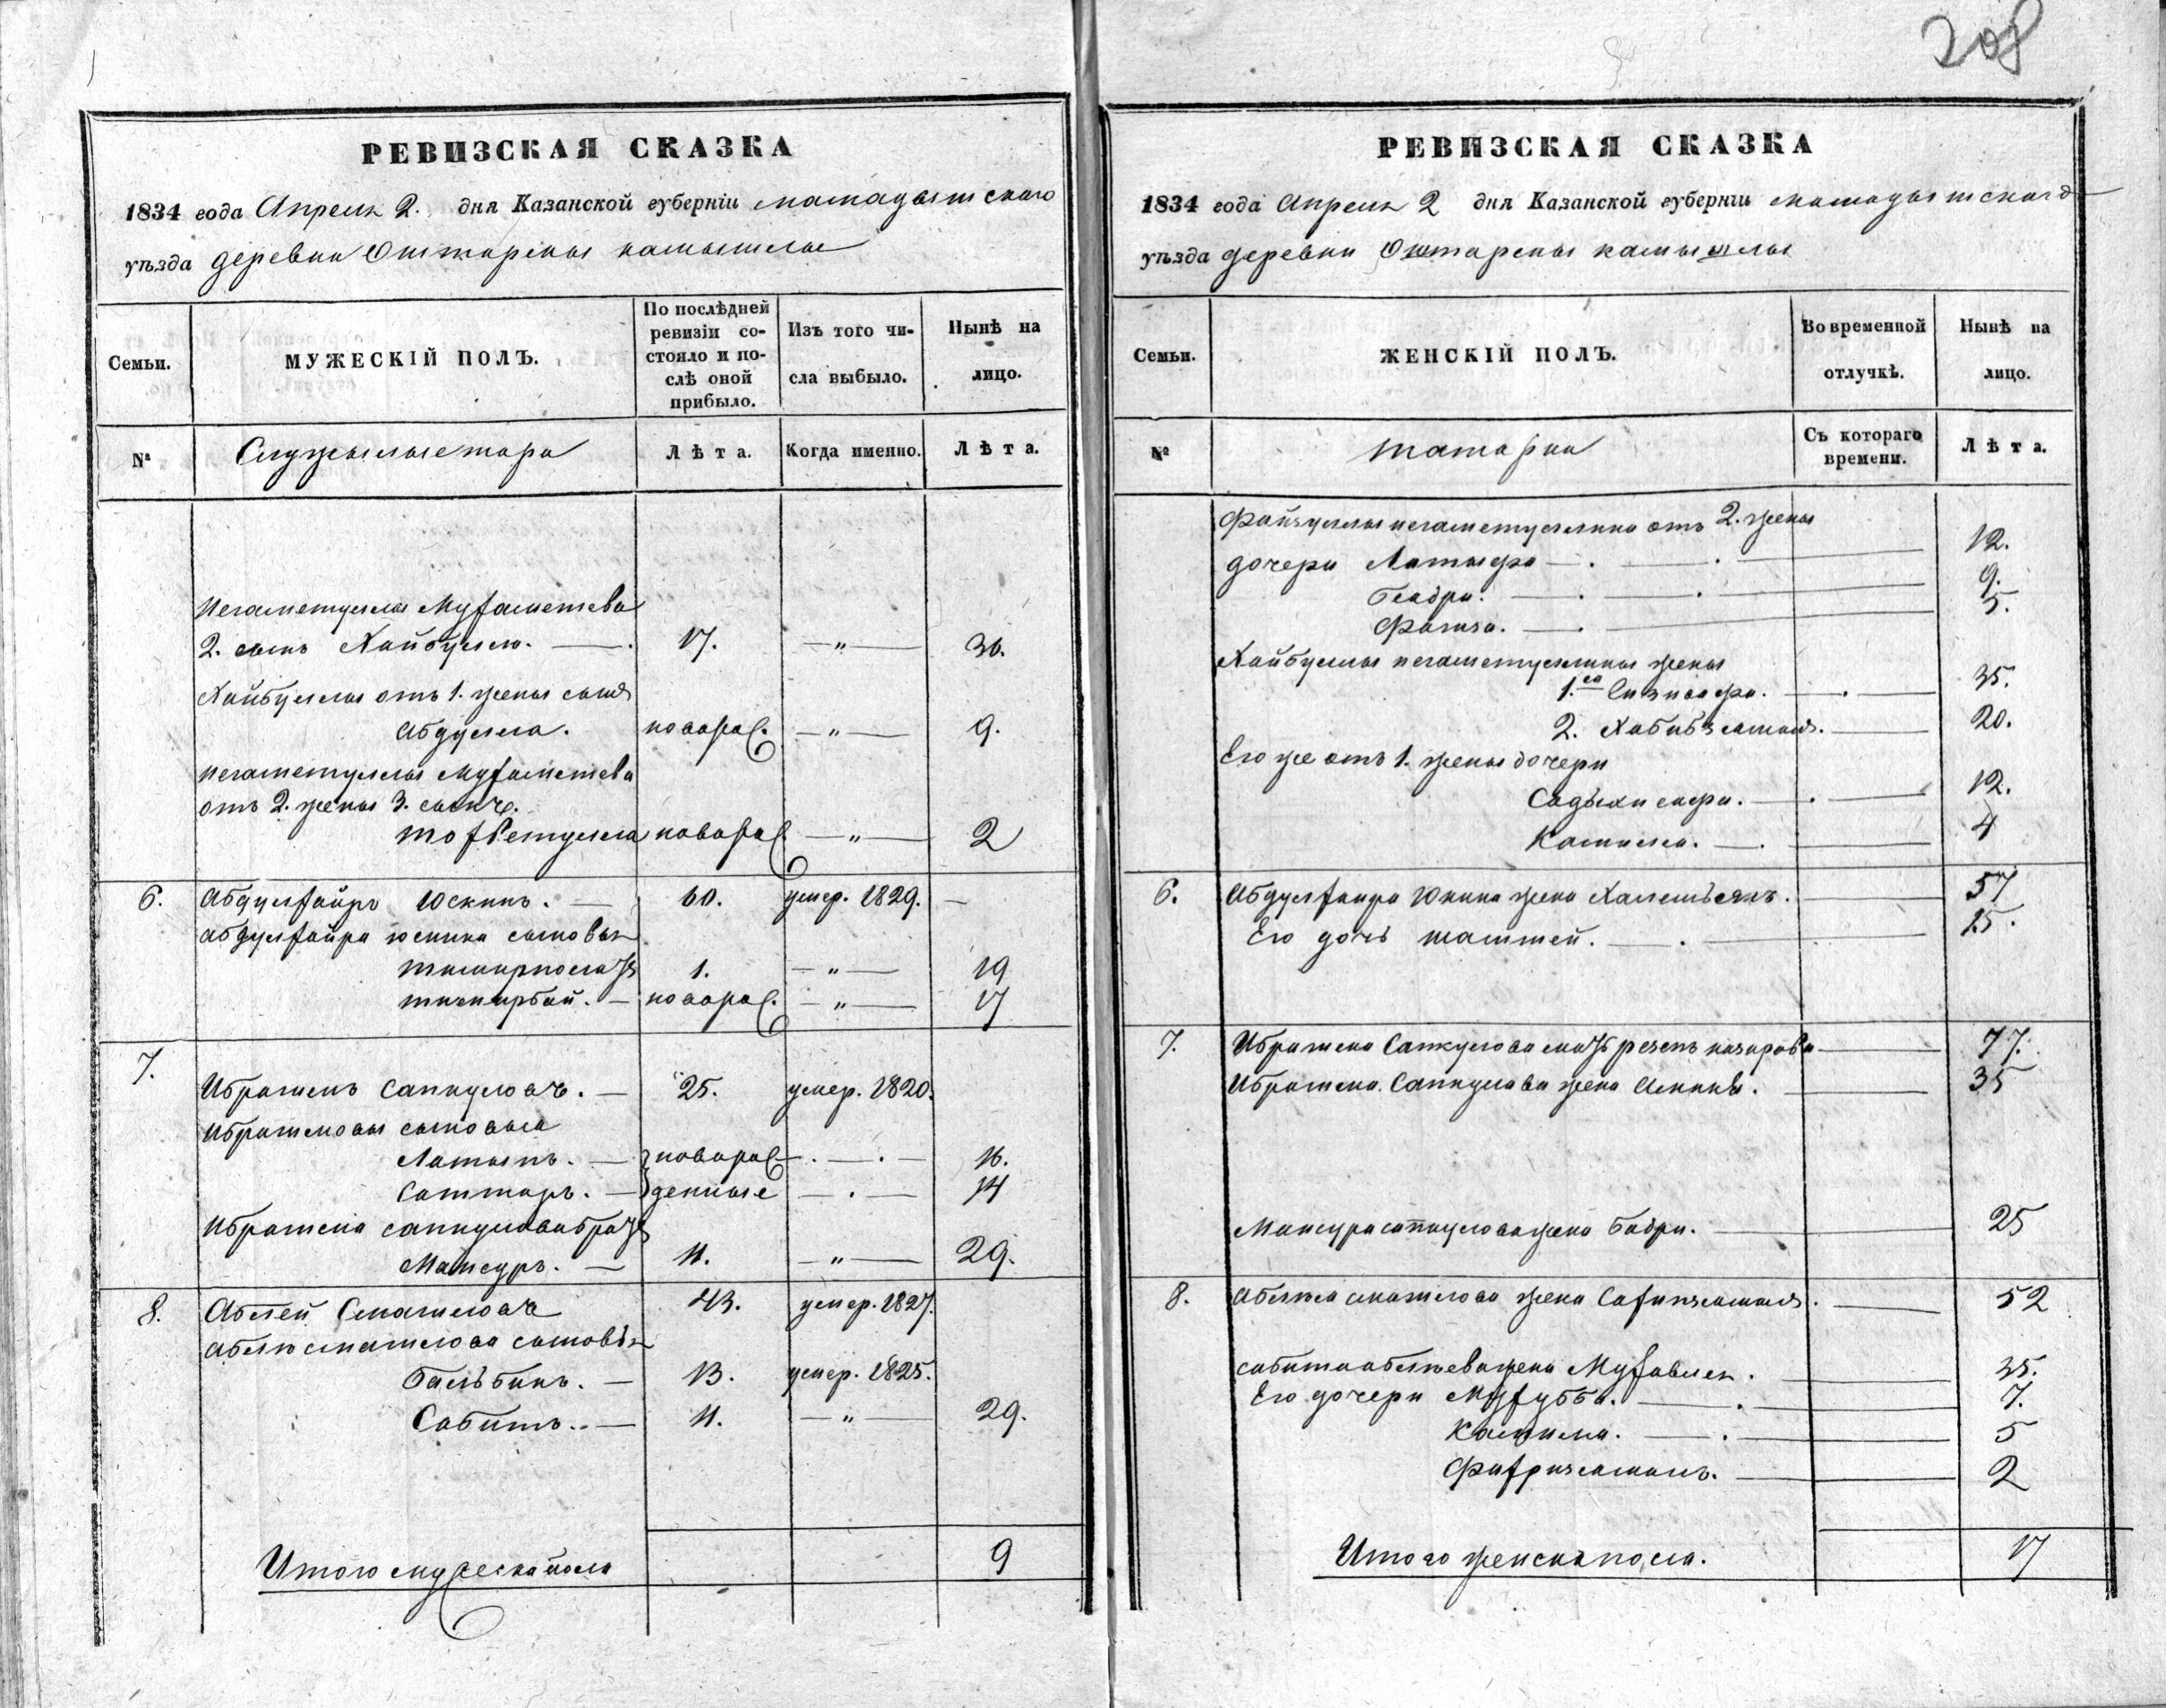 208
РЕВИЗСКАЯ СКАЗКА
1834 года Апреля 2. дня Казанской губерніи мамадышского
уѣзда деревни Оштарены камышлы
Семьи.
МУЖЕСКІЙ ПОЛЪ.
По послѣдней ревизіи со-
стояло и по-
слѣ оной
прибыло.
Изъ того чи-
сла выбыло.
Нынѣ на
лицо.
№
Служылыетара
Лѣта.
Когда именно.
Лѣта.
Негаметуллы Мухаметева
2. сынъ Хайбулла. 17. — " — 36.
Хайбуллы отъ 1. жены сынъ
Абдулла. новорож. — " — 9.
Негаметуллы Мухаметева
отъ 2. жены 3. сынъ.
новорож — " — 2
6. Абдулхаиръ Юскинъ. — 60. умер. 1829. —
Абдулхаира юскина сыновья
1. — " — 19
тимирбай. — новорож. — " — 17
7.
Ибрашъ Сапкуловъ. — 25. умер. 1820.
сыновья
Латыпъ. — новорож — . — . — 16.
Саттаръ. — денные — . — 14
сапкулова братъ
Мансуръ. — 11. — " — 29.
8. Аблей Смаиловъ 43. умер. 1827.
сыновья
Бальбикъ. — 13. умер. 1825.
Сабитъ. — 11. — " — 29.
Итого мужеска пола 9
РЕВИЗСКАЯ СКАЗКА
1834 года Апреля 2 дня Казанской губерніи мамадышского
уѣзда деревни Оштарены камышлы
Семьи.
ЖЕНСКІЙ ПОЛЪ.
Во временной
отлучкѣ.
Нынѣ на
лицо.
№
татары
Съ котораго
времени.
Лѣта.
Файзуллы негаметуллина отъ 2. жены
дочери Латыфа — . — . — 12.
Бадри. — . — . — 9.
Фагиза. — . — 5.
Хайбуллы негаметуллина жены
1.ая — . — 35.
2. Хабибзямалъ. — 20.
Его же отъ 1. жены дочери
— . — 12.
Камила. — . — 4
6. Абдулхаира Юкина жена — 57
Его дочь — . — 15.
7. Сапкулова мать назарова — 77.
Сапкулова жена — 35
Мансура сапкулова жена Бадри. — 25
8. жена — 52
Сабита аблѣева жена — 35.
Его дочери — . — 7.
Камила. — . — 5
Фахризямалъ. — 2
Итого женска пола. 17